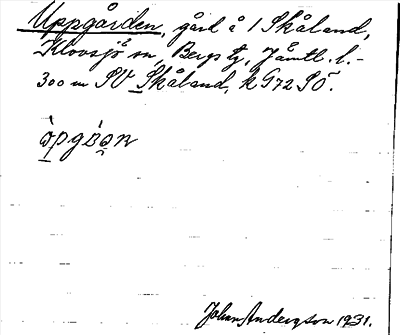 Uppgården, gård å 1 Skåland,
Klovsjö sn, Bergs tg, Jämtl. l. -
300 m SV Skåland, k G72 SÖ.
Johan Anderson 1931.